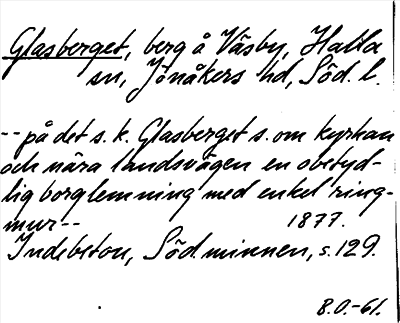 Glasberget, berg å Väsby, Halla
sn, Jönåkers hd, Söd. l.
-- på det s. k. Glasberget s. om kyrkan
och nära landsvägen en obetyd-
lig borglemning med enkel ring-
mur-- 1877.
Indebetou, Söd. minnen, s. 129.
8.0.-61.